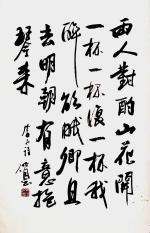 两人對酌山花開
一杯一杯復一杯我
醉欲眠卿且
去明朝有意抱
琴来
李白詩